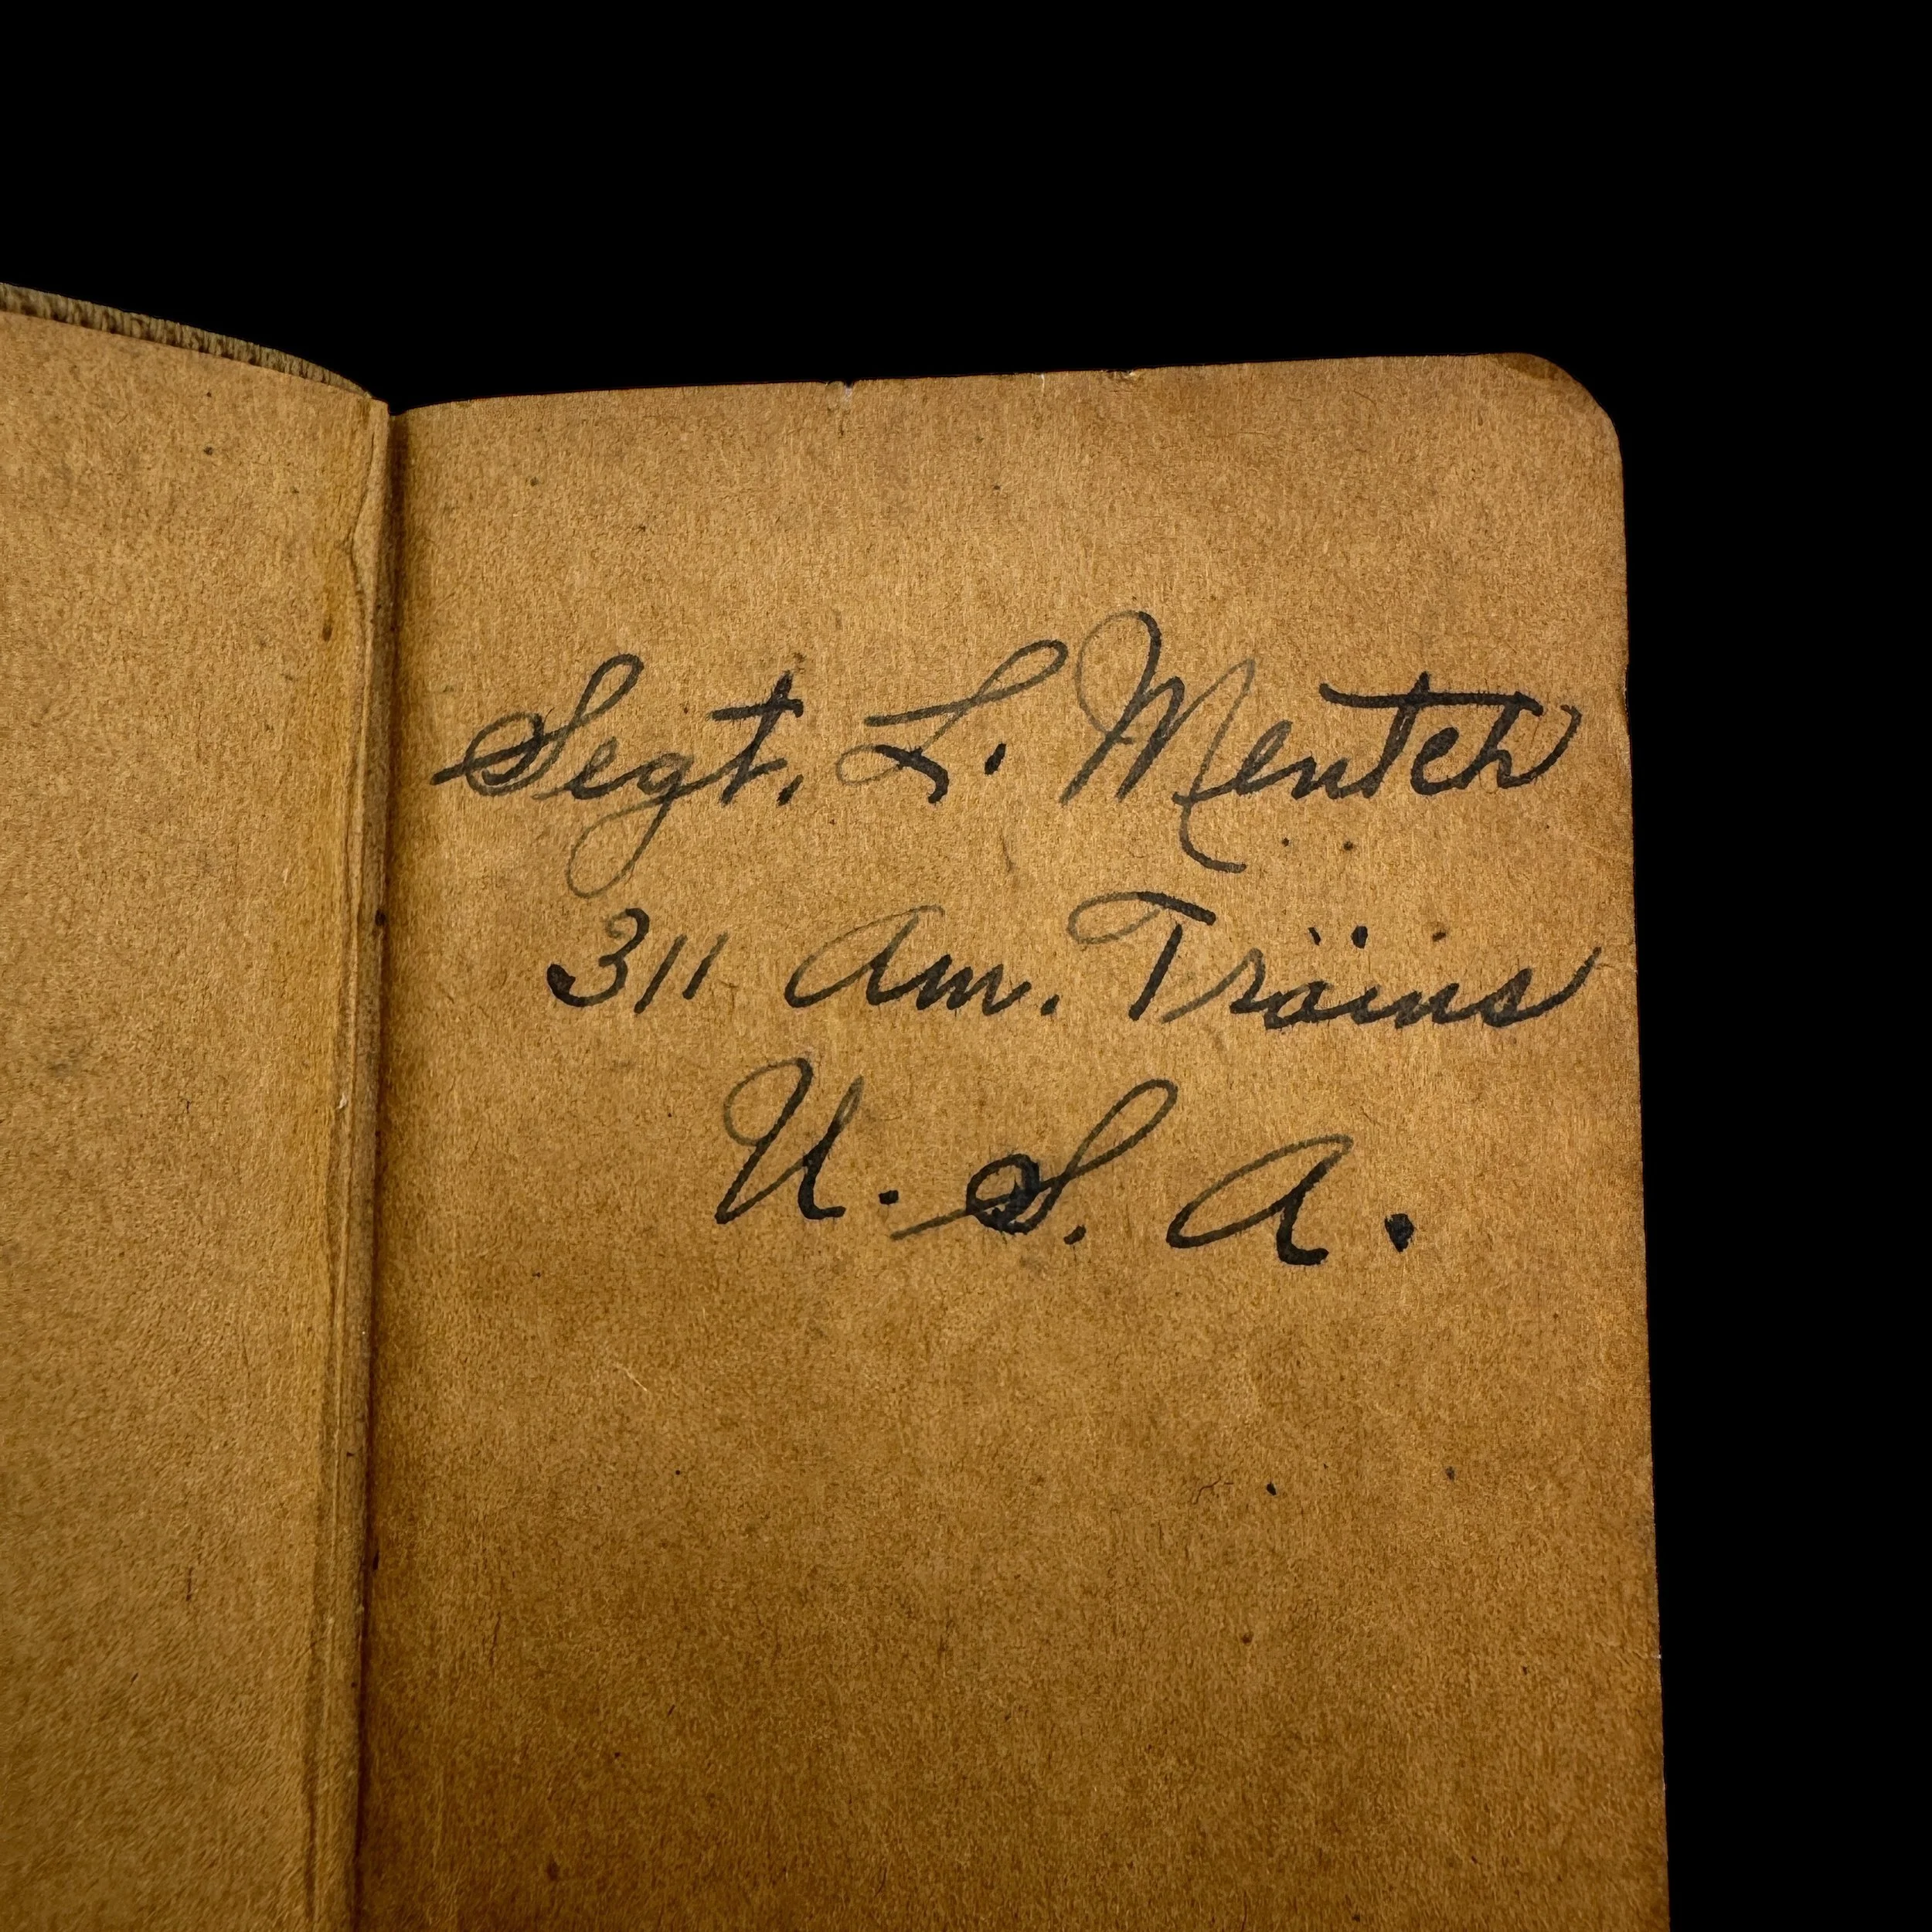 Segt. L. Mentch
311 Am. Trains
U.S.A.